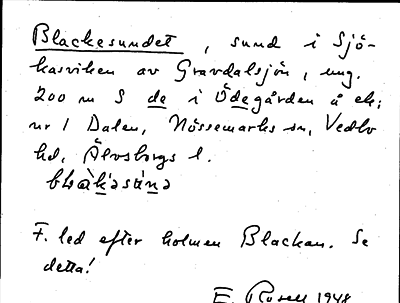 Blackesundet, sund i Sjö-
kasviken av Gravdalsjön, ung.
200 m S de i Ödegården å ek;
nr 1 Dalen, Nössemarks sn, Vedbo
hd, Älvsborgs l.
F. led efter holmen Blackan. Se
detta!
E. Rosell 1948